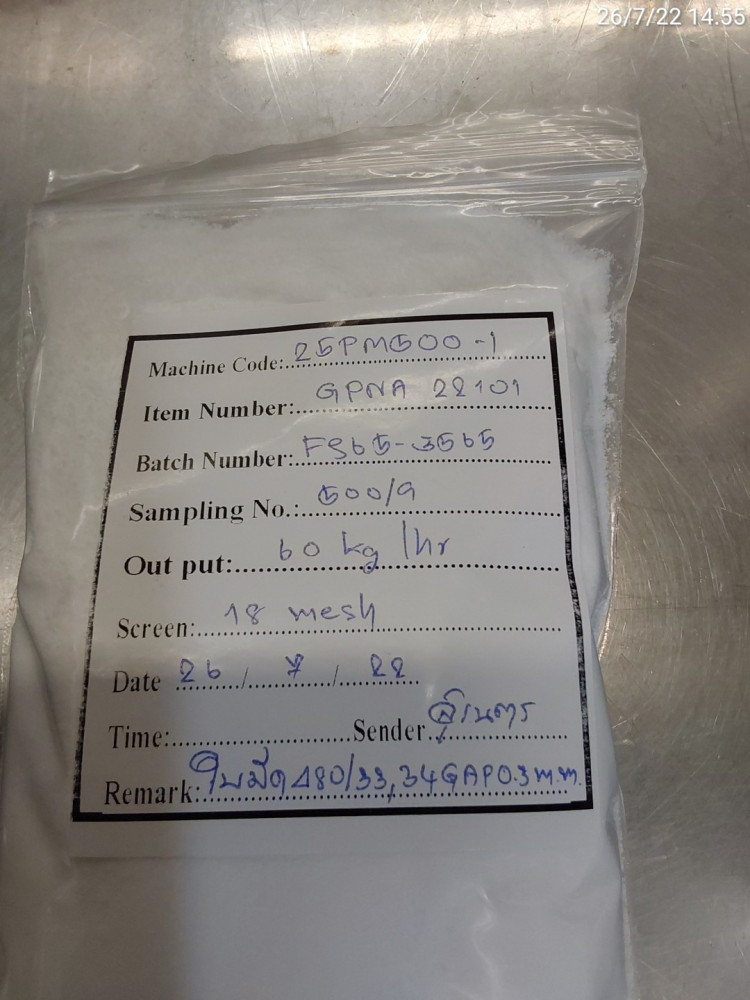 26/7/22 14:55
Machine Code: 25PM500-1
Item Number: GPNA 22101
Batch Number: FS65-3565
Sampling No.: 500/9
Out put: 60 kg/hr
Screen: 18 mesh
Date 26/7/22
Time: Sender
Remark: ใบมีด 480/33,34 GAP 0.3 m.m.